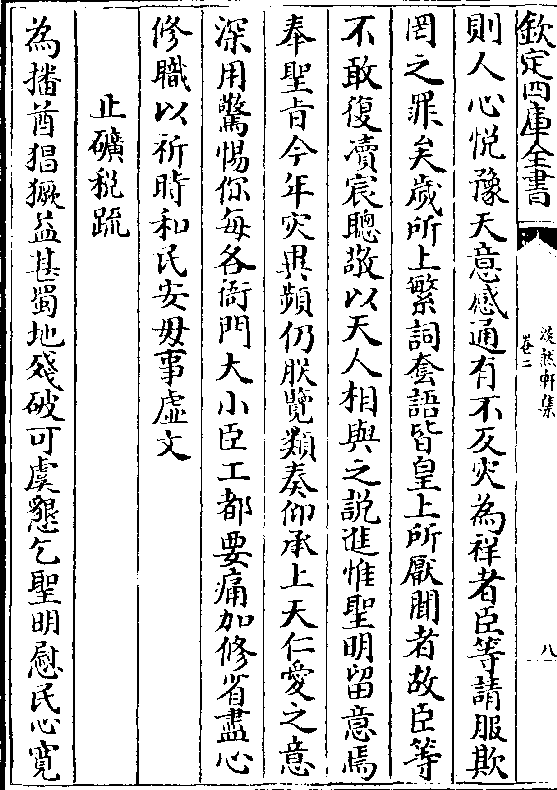 欽定四庫全書
淡然軒集
卷二
八
則人心悅豫天意感通有不反災為祥者臣等請服欺
罔之罪矣歲所上繁詞套語皆皇上所厭聞者故臣等
不敢復凟宸聰敬以天人相與之說進惟聖明留意焉
奉聖旨今年災異頻仍朕覽類奏仰承上天仁愛之意
深用驚惕你每各衙門大小臣工都要痛加修省盡心
修職以祈時和民安毋事虛文
止礦稅疏
為播酋猖獗益甚蜀地殘破可虞懇乞聖明慰民心寬